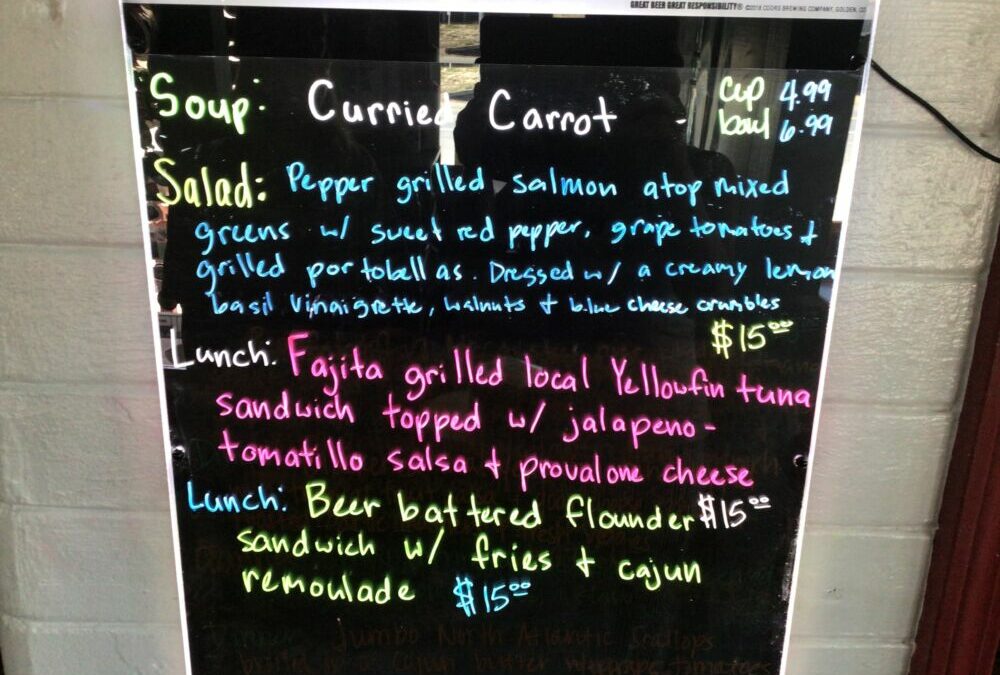 GREAT BEER GREAT RESPONSIBILITY® ©2018 COORS BREWING COMPANY, GOLDEN, CO
Soup: Curried Carrot - cup 4.99
bowl 6.99
Salad: Pepper grilled salmon atop mixed
greens w/ sweet red pepper, grape tomatoes &
grilled portobellas. Dressed w/ a creamy lemon
basil vinaigrette, walnuts & blue cheese crumbles
$15.00
Lunch: Fajita grilled local Yellowfin tuna
sandwich topped w/ jalapeno-
tomatillo salsa & provalone cheese
Lunch: Beer battered flounder $15.00
sandwich w/ fries & cajun
remoulade $15.00
Jumbo North Atlantic Scallops
cajun butter w/ grape tomatoes